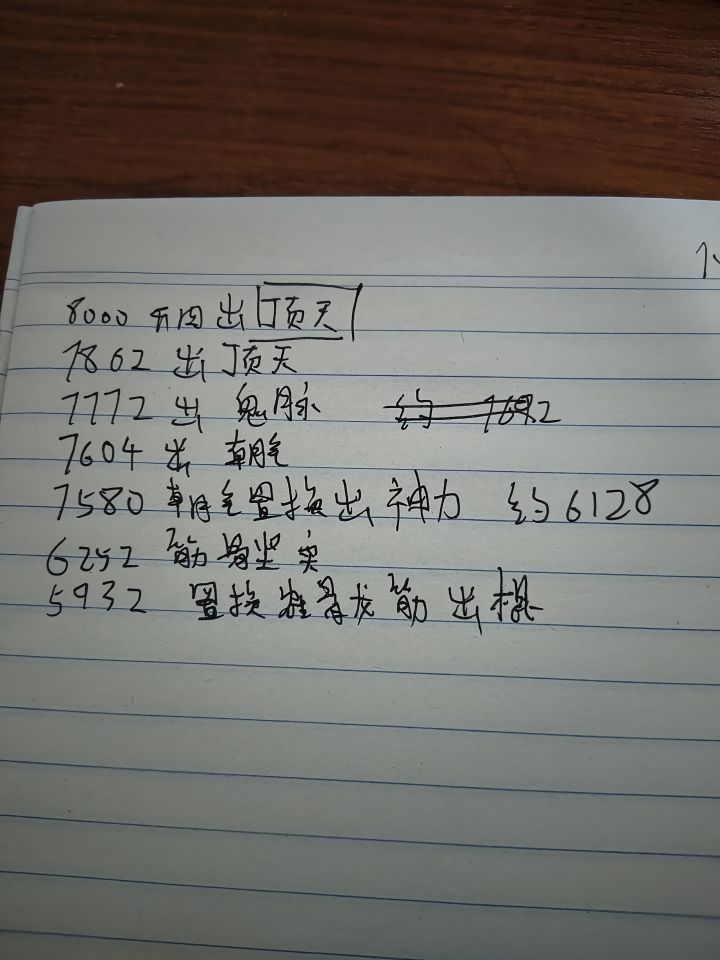 8000 出 顶天
7862 出 顶天
7772 出 鬼脉
7604 出 朝
7580 置换出神力 约6128
6252 筋骨坚实
5932 置换 骨龙筋出